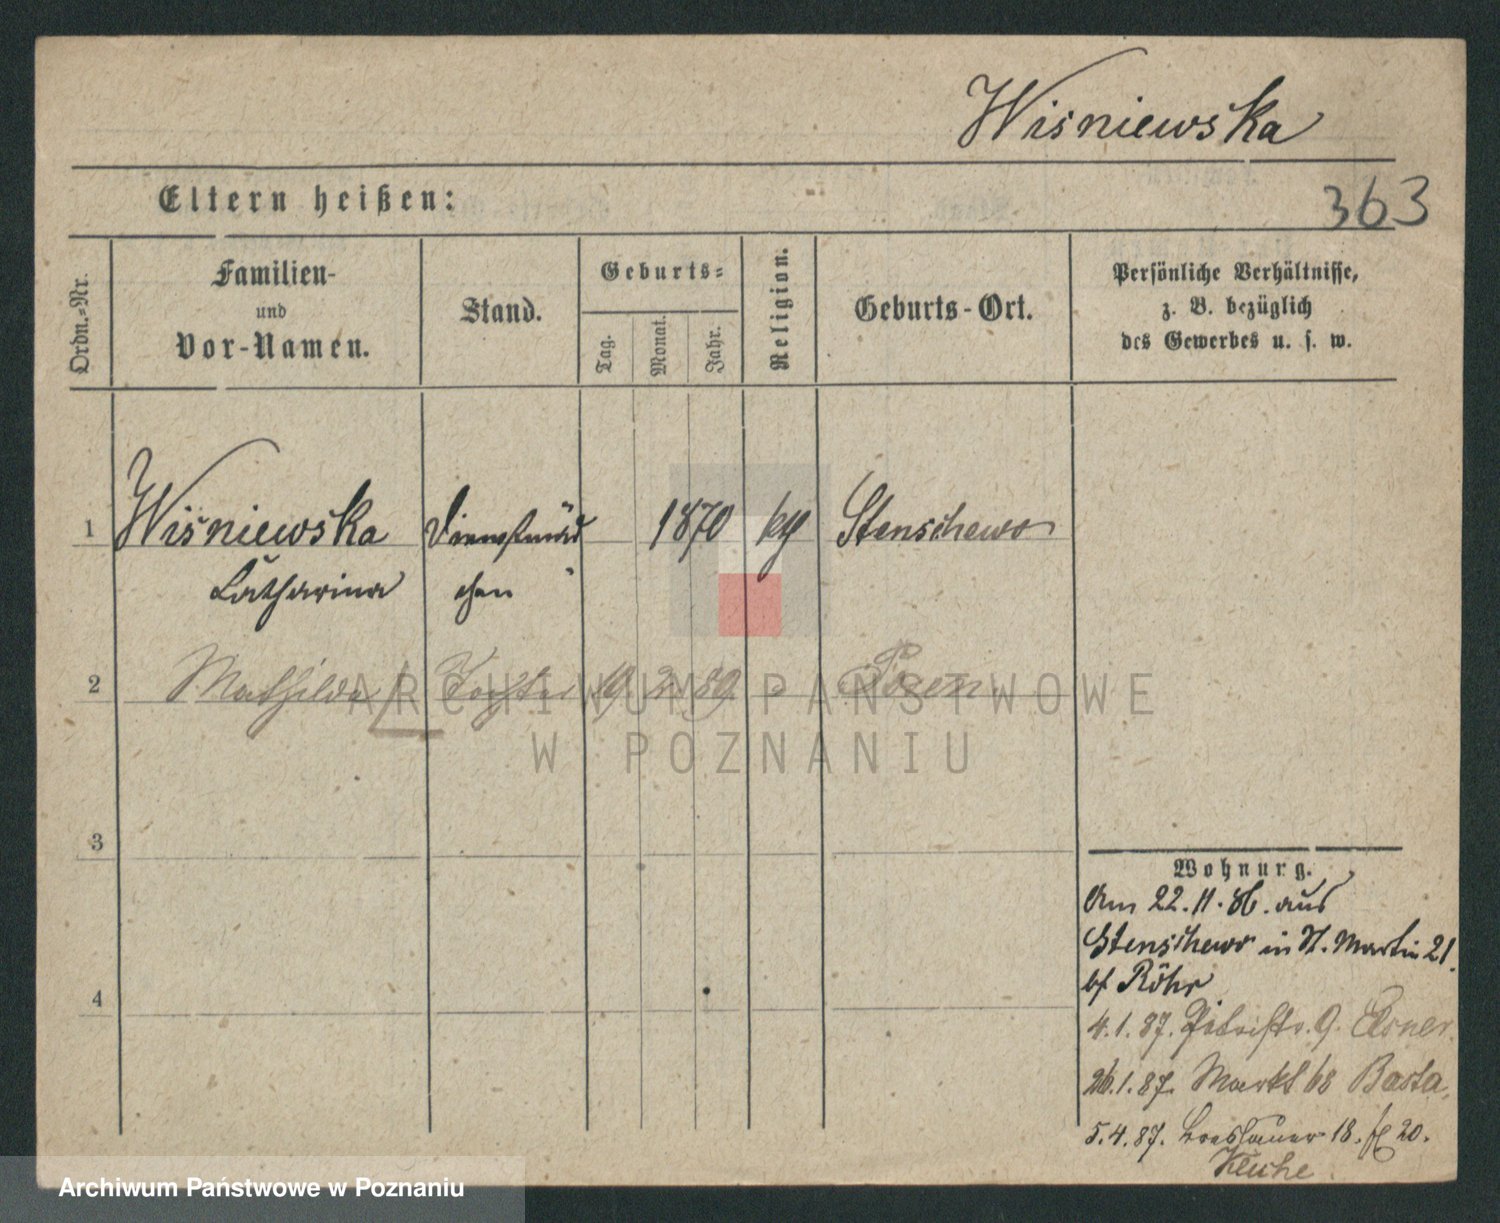 Wiśniewska
Eltern heißen:
363
Ordn.-Nr.
Familien-
und
Vor-Namen.
Stand.
Geburts-
Tag.
Monat.
Jahr.
Religion.
Geburts-Ort.
Persönliche Verhältnisse,
z. B. bezüglich
des Gewerbes u. s. w.
1 Wiśniewska Dienstmäd 1870 Stenschewo
Catharina chen
2 Mathilde Tochter 19. 2. 89. Posen
ARCHIWUM PAŃSTWOWE
W POZNANIU
3
4
Wohnung.
Am 22. 11. 86. aus
Stenschewo in St. Martin 21.
bf Röhr
4. 1. 87. 9. Elsner.
26. 1. 87. Markt 68 Basta,
5. 4. 87. Breslauer 18. 20.
Archiwum Państwowe w Poznaniu